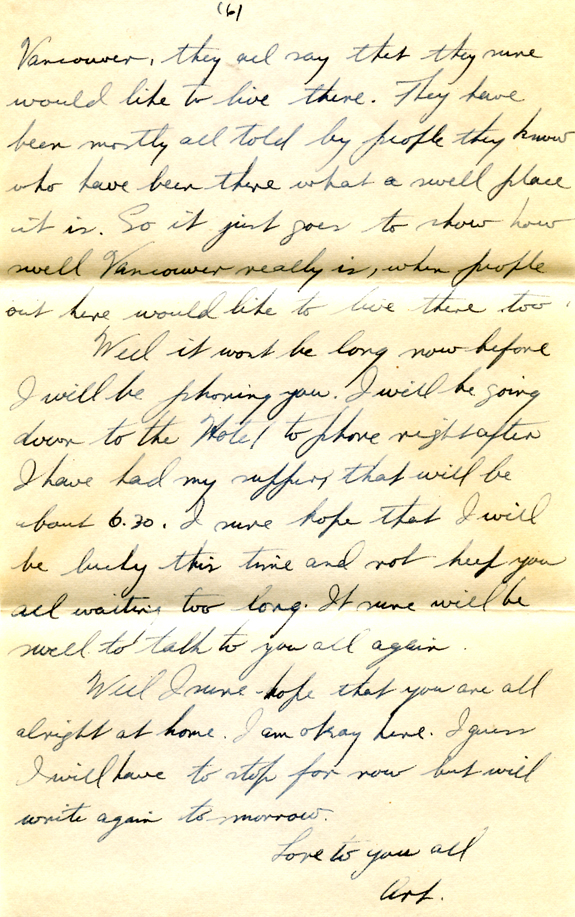 (6)
Vancouver, they all say that they sure
would like to live there. They have
been mostly all told by people they know
who have been there what a swell place
it is. So it just goes to show how
swell Vancouver really is, when people
out here would like to live there too.
Well it wont be long now before
I will be phoning you. I will be going
down to the Hotel to phone right after
I have had my supper, that will be
about 6.30. I sure hope that I will
be lucky this time and not keep you
all waiting too long. It sure will be
swell to talk to you all again.
Well I sure hope that you are all
alright at home. I am okay here. I guess
I will have to stop for now but will
write again tomorrow.
Love to you all
Art.